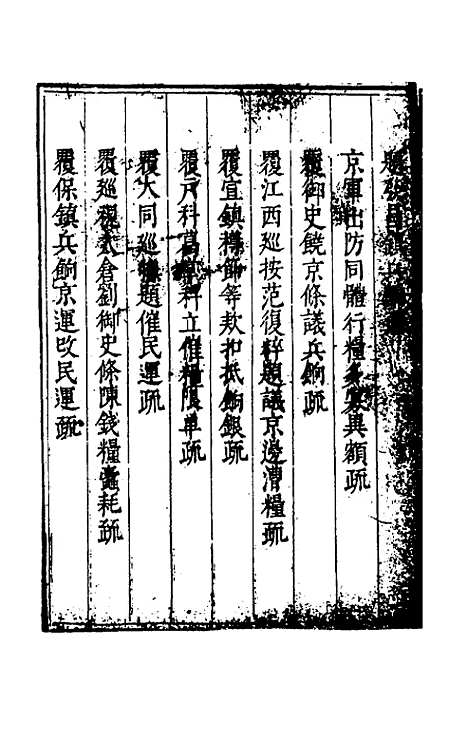 京軍出防同體行糧多寡異額疏
覆御史饒京條議兵餉疏
覆江西巡按范復粹題議京邊漕糧疏
覆宣鎮欵餉等欵扣抵餉銀疏
覆戶科葛科立催糧限單疏
覆大同巡題催民運疏
覆巡視太倉劉御史條陳錢糧蠹耗疏
覆保鎮兵餉京運改民運疏